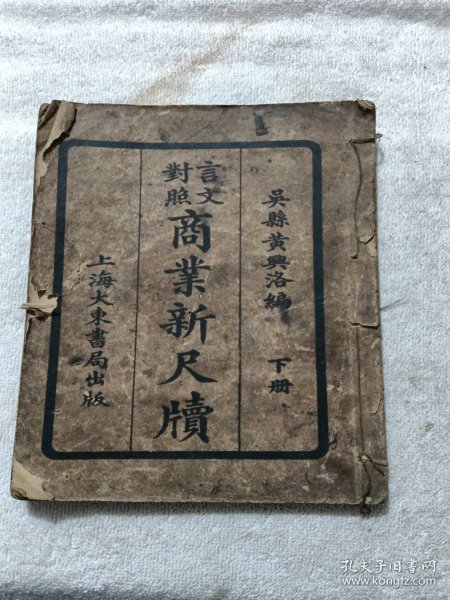 吳縣黃興洛編 下册
言文
對照
商業新尺牘
上海大東書局出版
孔夫子旧书网
www.kongfz.com